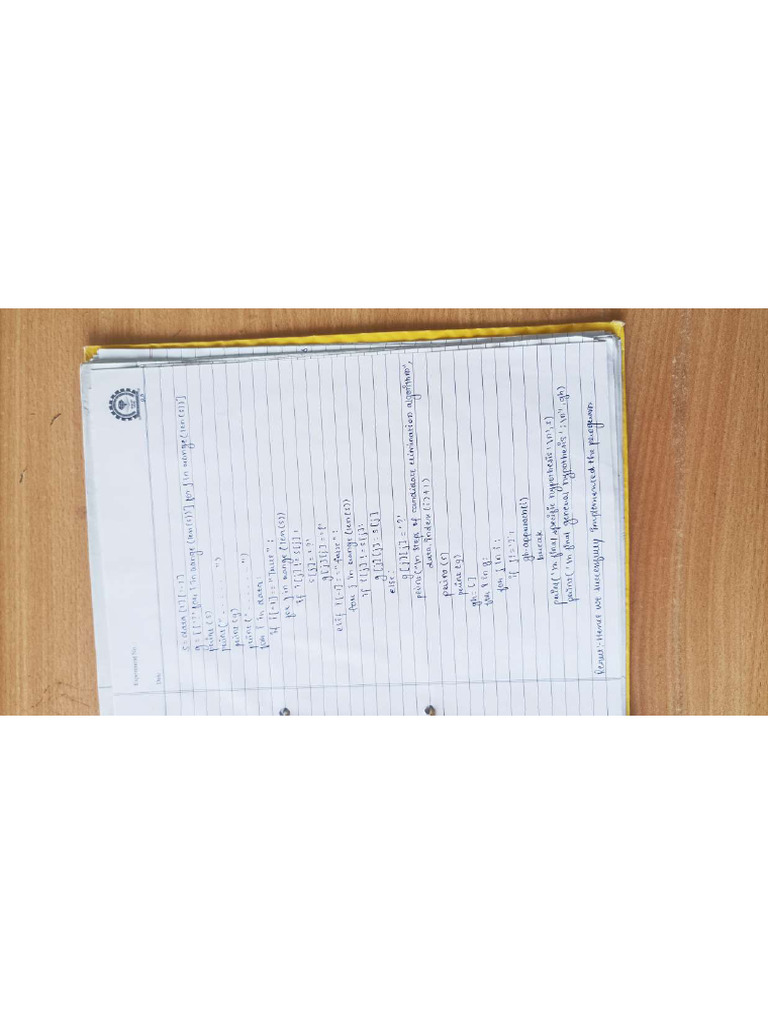 Experiment No.
Date
s = data[1][:-1]
g = [['?' for i in range(len(s))] for j in range(len(s))]
print(s)
print("- - - ")
print(g)
print("- - - - - - - ")
for i in data
if i[-1] == "True" :
for j in range(len(s))
if i[j] != s[j] :
s[j] = '?'
g[j][j] = '?'
elif i[-1] == "False" :
for j in range(len(s))
if i[j] != s[j] :
g[j][j] = s[j]
else :
g[j][j] = '?'
print("\n steps of candidate elimination algorithm",
data.index(i)+1)
print(s)
print(g)
gh = []
for i in g:
for j in i :
if j != '?' :
gh.append(i)
break
print('\n final specific hypothesis : \n', s)
print('\n final general hypothesis : \n', gh)
Result: Hence we successfully implemented the program